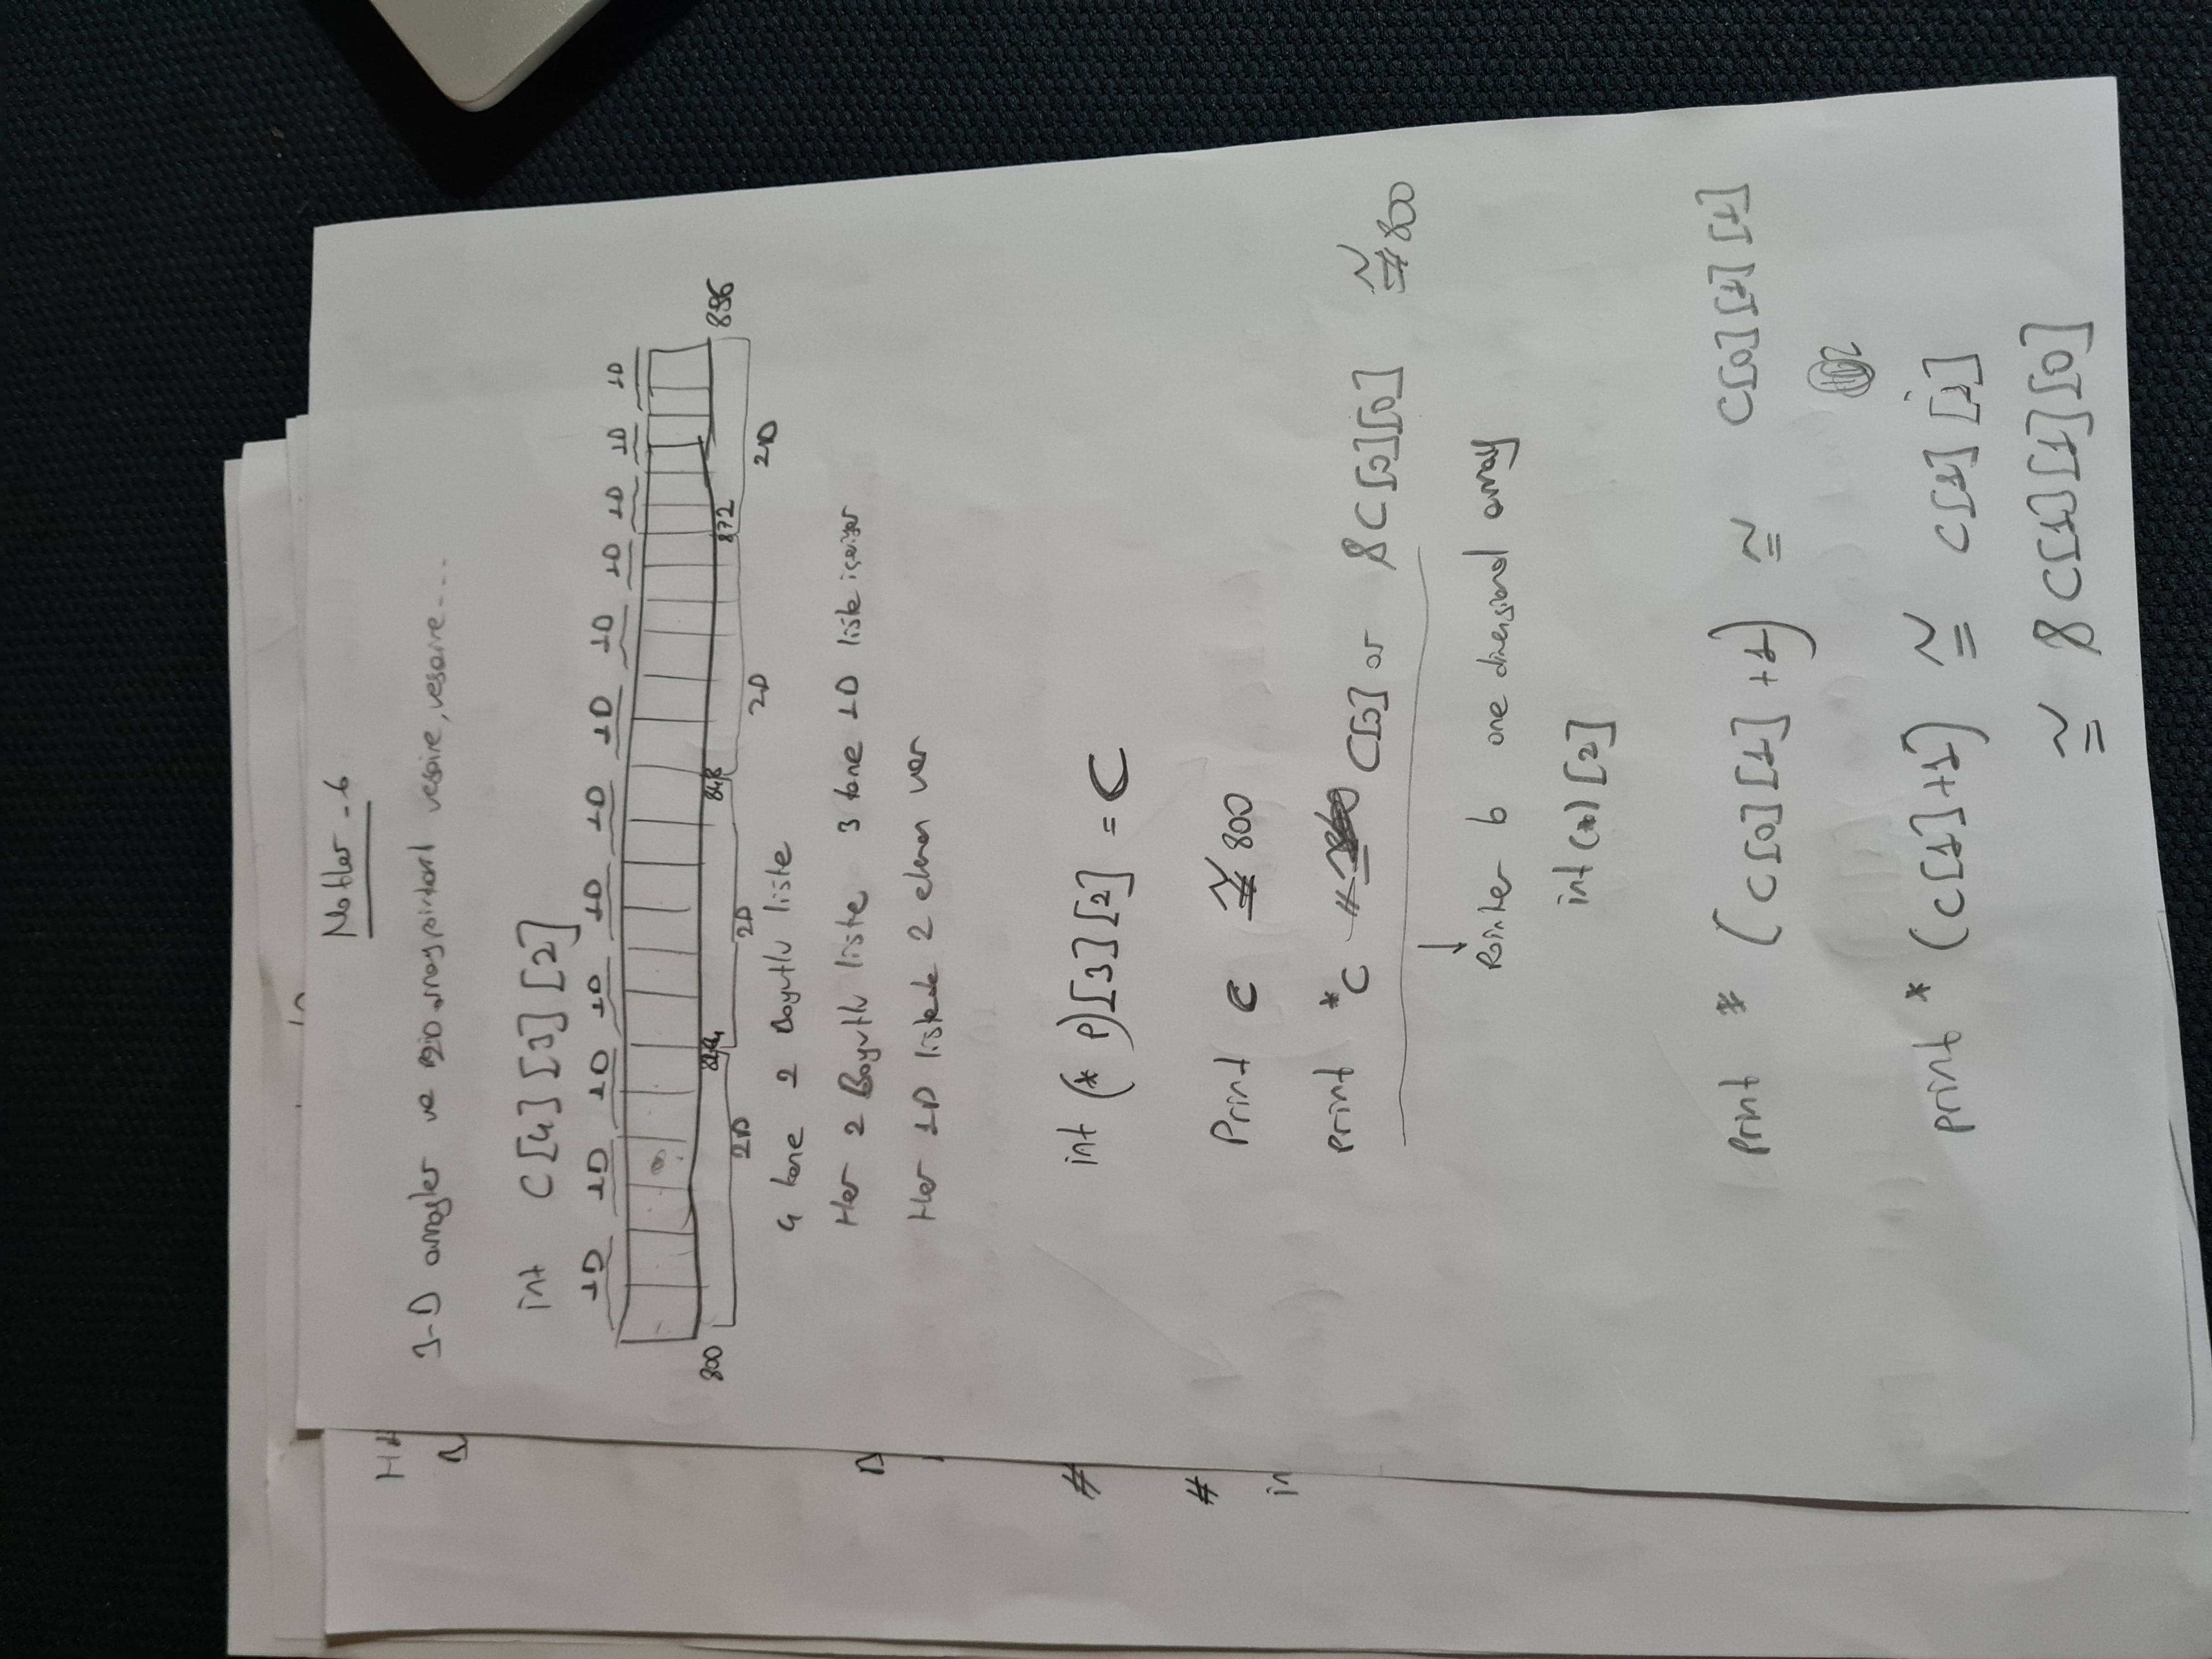 Notlar - 6
3-D arrayler ve vesaire, vesaire...
int C[4][3][2]
1D 1D 1D 1D 1D 1D 1D 1D 1D 1D 1D 1D
800 824 848 872 896
2D 2D 2D 2D
4 tane 2 Boyutlu liste
Her 2 Boyutlu liste 3 tane 1D liste içeriyor
Her 1D listede 2 eleman var
int (* P)[3][2] = C
Print C ≅ 800
print *C C[0] or &C[0][0] ≅ 800
↓
Pointer to one dimensional array
int (*) [2]
print * (C[0][1] +1) ≅ C[0][1][1]
print * (C[1]+1) ≅ C[1][1]
≅ &C[1][1][0]
H
B
D
#
#
in